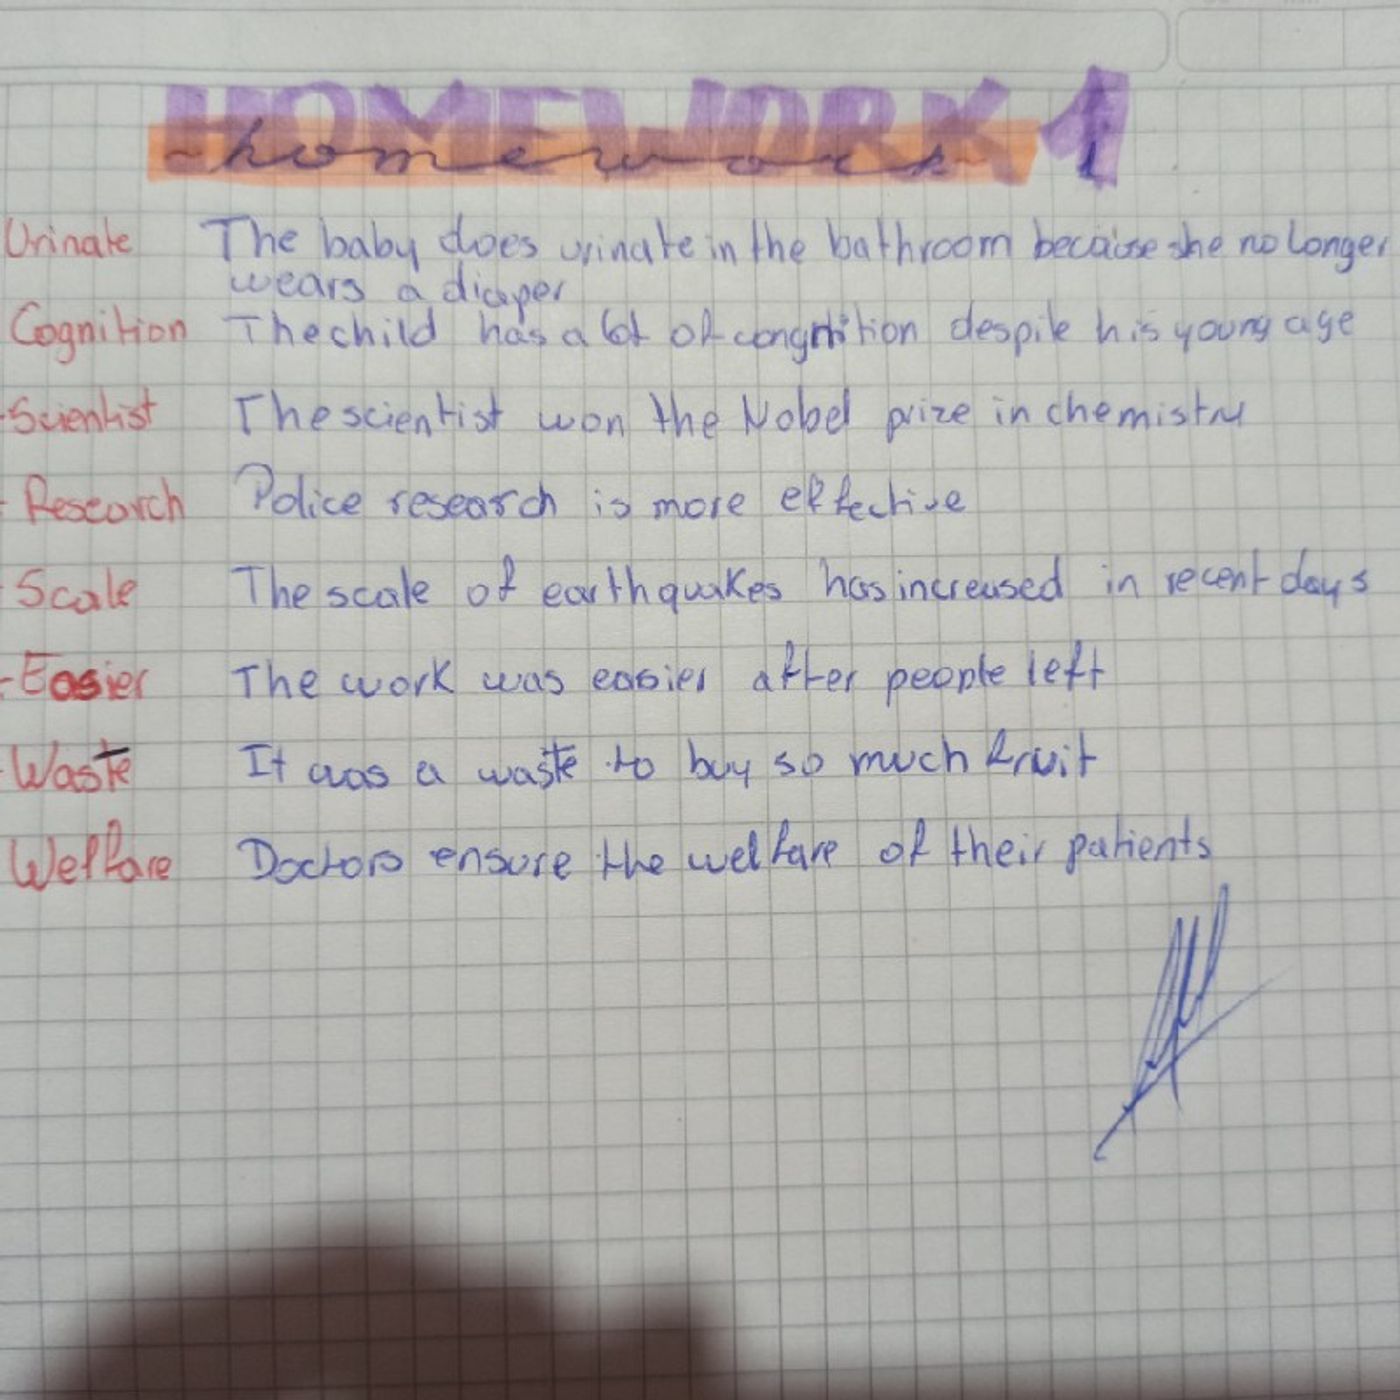 HOMEWORK 1
-homework- 1
Urinate The baby does urinate in the bathroom because she no longer
wears a diaper
Cognition The child has a lot of congnition despite his young age
-Scientist The scientist won the Nobel prize in chemistry
- Research Police research is more effective
- Scale The scale of earthquakes has increased in recent days
- Easier The work was easier after people left
- Waste It was a waste to buy so much fruit
Welfare Doctors ensure the welfare of their patients